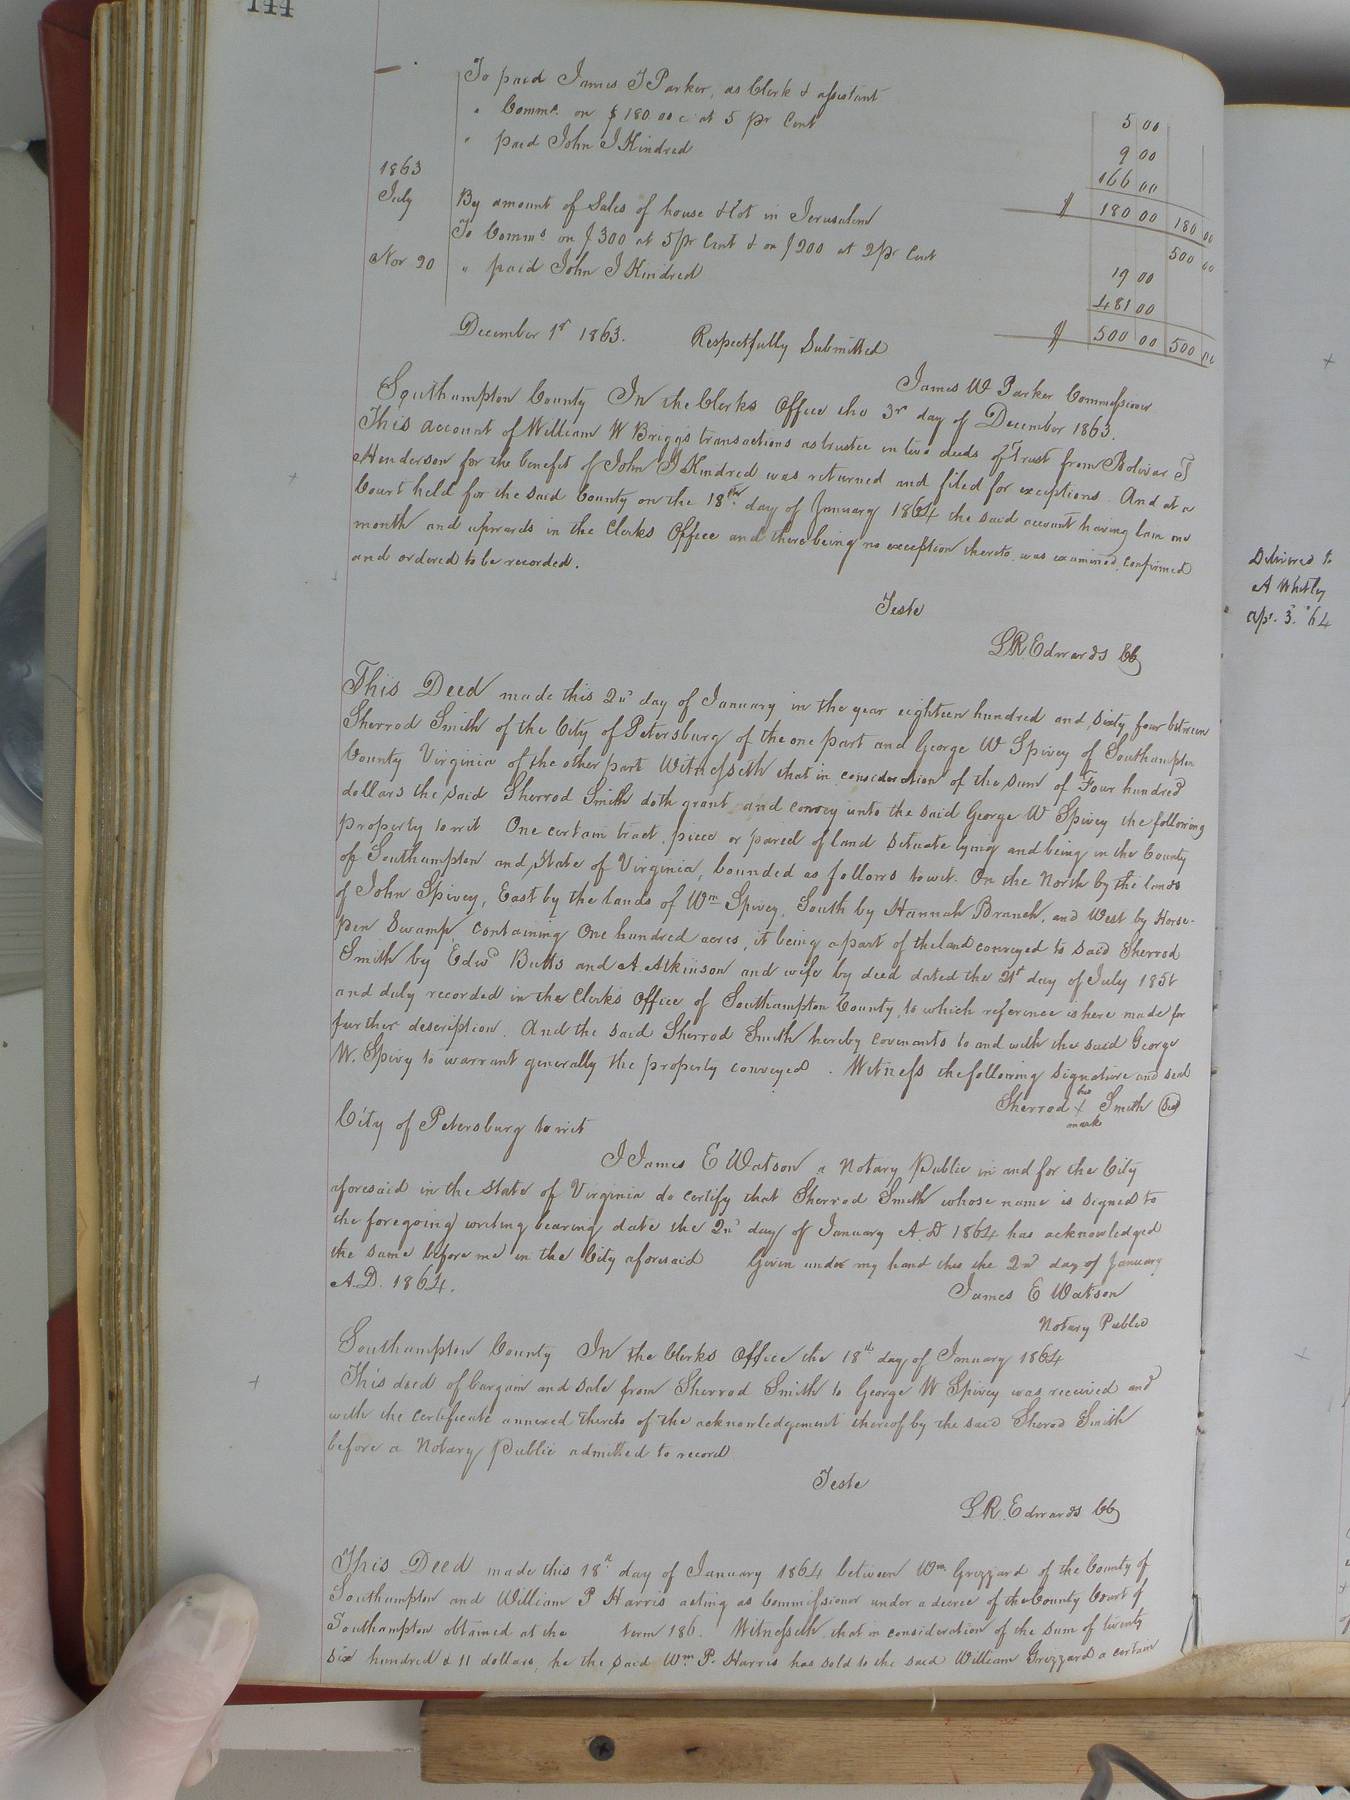 144
To paid James T Parker, as Clerk & assistant 5 00
" Comms. on $180.00 c at 5 pr Cent 9 00
" paid John J Kindred 166 00
$ 180 00 180 00
1863
July By amount of Sales of house & Lot in Jerusalem 500 00
To Comms on $300 at 5 pr Cent & on $200 at 2 pr Cent 19 00
Nov 20 " paid John J Kindred 481 00
$ 500 00 500 00
December 1st 1863. Respectfully Submitted
James W Parker Commissioner
Southampton County In the Clerks Office the 3r day of December 1863.
This account of William W Briggs transactions as trustee in two deeds of Trust from Bolivar T
Henderson for the benefit of John J Kindred was returned and filed for exceptions. And at a
Court held for the said County on the 18th day of January 1864 the said account having lain one
month and upwards in the Clerks Office and there being no exception thereto, was examined, confirmed
and ordered to be recorded.
Teste
L R Edwards CC
This Deed made this 2nd day of January in the year eighteen hundred and sixty four between
Sherrod Smith of the City of Petersburg of the one part and George W Spivey of Southampton
County Virginia of the other part Witnesseth that in consideration of the sum of Four hundred
dollars the said Sherrod Smith doth grant and convey unto the said George W Spivey the following
property to wit One certain tract, piece or parcel of land situate lying and being in the County
of Southampton and State of Virginia, bounded as follows to wit. On the North by the lands
of John Spivey, East by the lands of Wm Spivey, South by Hannah Branch, and West by Horse-
pen Swamp, containing One hundred acres, it being a part of the land conveyed to said Sherrod
Smith by Edwd Butts and A. Atkinson and wife by deed dated the 21st day of July 185
and duly recorded in the Clerks Office of Southampton County, to which reference is here made for
further description. And the said Sherrod Smith hereby covenants to and with the said George
W. Spivey to warrant generally the property conveyed. Witness the following signature and seal
Sherrod his x mark Smith (Seal)
City of Petersburg to wit
I James E Watson a Notary Public in and for the City
aforesaid in the State of Virginia do certify that Sherrod Smith whose name is signed to
the foregoing writing bearing date the 2nd day of January A.D 1864 has acknowledged
the same before me in the City aforesaid Given under my hand this the 2nd day of January
A.D. 1864.
James E Watson
Notary Public
Southampton County In the Clerks Office the 18th day of January 1864
This deed of bargain and sale from Sherrod Smith to George W Spivey was received and
with the certificate annexed thereto of the acknowledgement thereof by the said Sherod Smith
before a Notary Public admitted to record
Teste
L R. Edwards CC
This Deed made this 18th day of January 1864 between Wm Grizzard of the County of
Southampton and William P Harris acting as Commissioner under a decree of the County Court of
Southampton obtained at the term 186 . Witnesseth that in consideration of the sum of twenty
six hundred & 11 dollars, he the said Wm P. Harris has sold to the said William Grizzard a certain
Delivered to
A Whitley
Apr. 3. '64